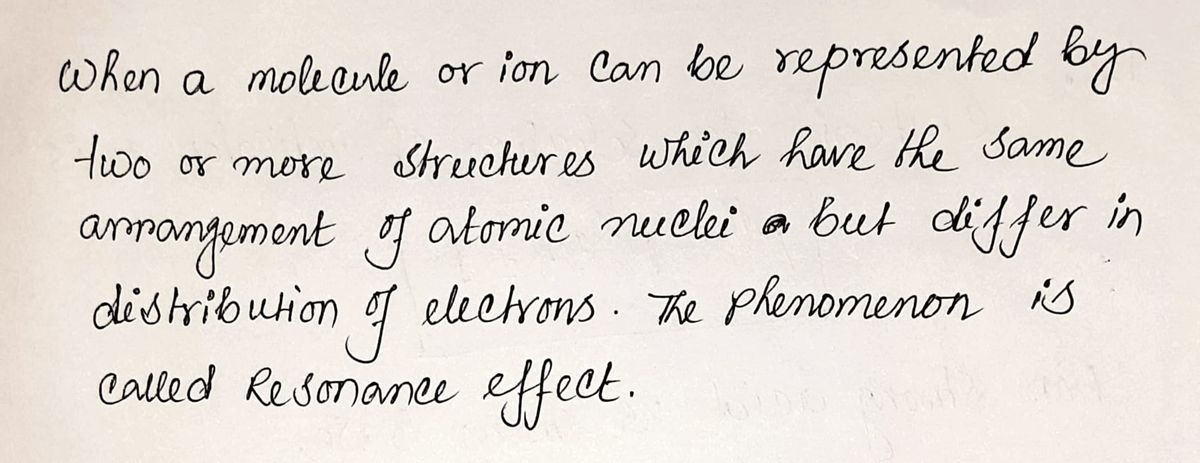 When a molecule or ion can be represented by
two or more structures which have the same
arrangement of atomic nuclei but differ in
distribution of electrons. The phenomenon is
called Resonance effect.